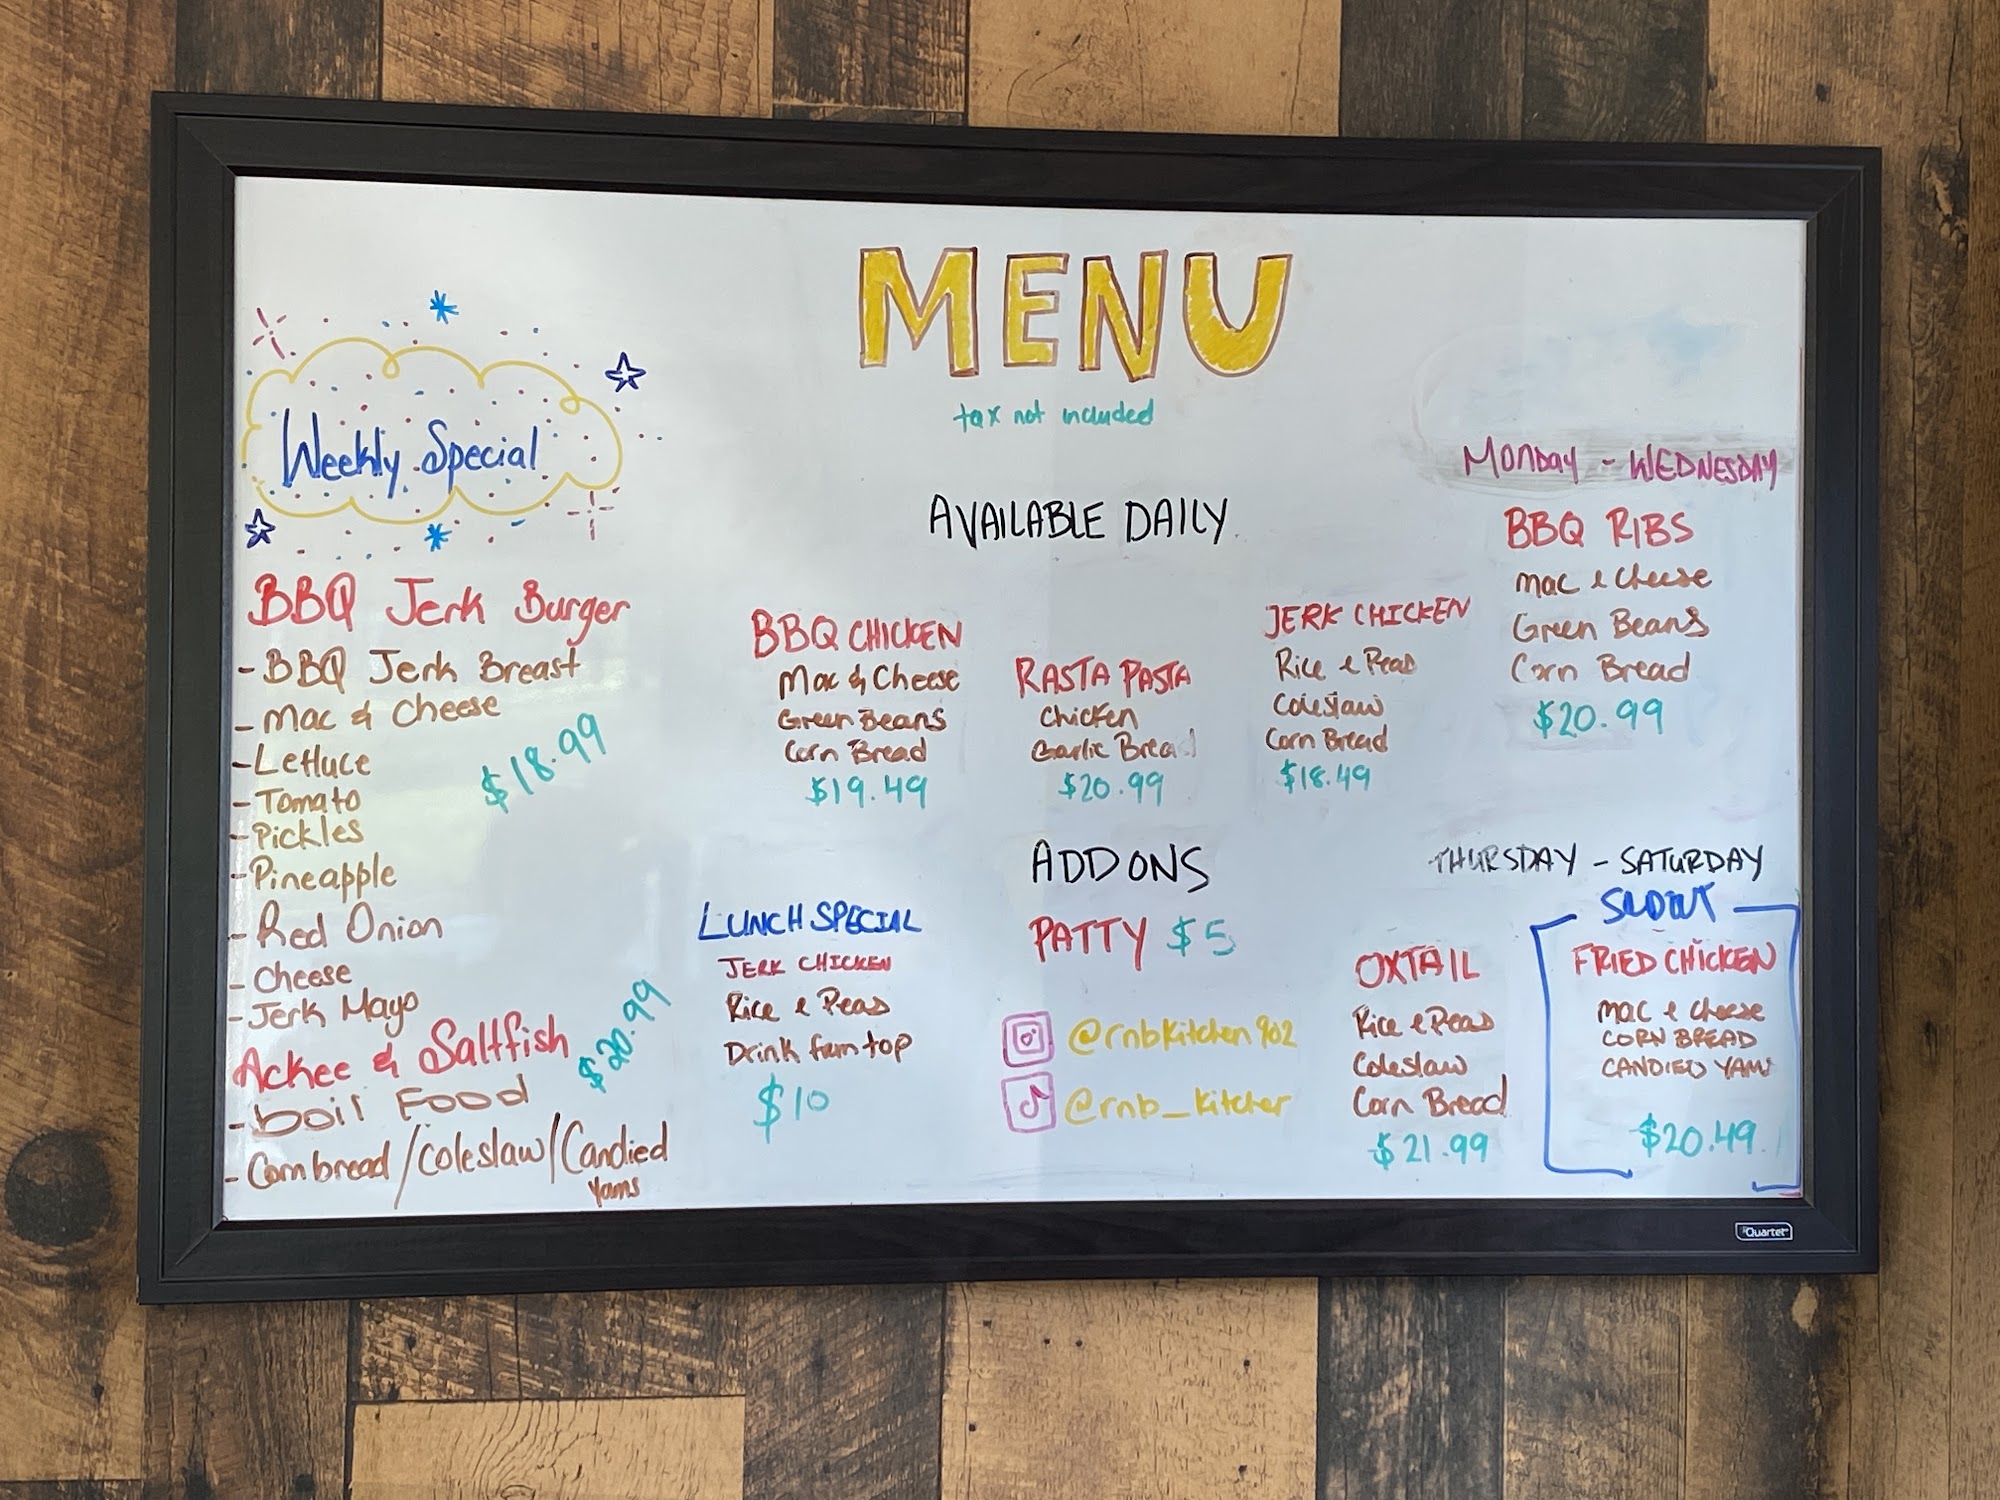 MENU
tax not included
Weekly Special
BBQ Jerk Burger
- BBQ Jerk Breast
- Mac & Cheese
- Lettuce
- Tomato
- Pickles
- Pineapple
- Red Onion
- Cheese
- Jerk Mayo
$18.99
Ackee & Saltfish
- boil Food
- Cornbread/Coleslaw/Candied
Yams
$20.99
AVAILABLE DAILY
BBQ CHICKEN
Mac & Cheese
Green Beans
Corn Bread
$19.49
RASTA PASTA
Chicken
Garlic Bread
$20.99
JERK CHICKEN
Rice & Peas
Coleslaw
Corn Bread
$18.49
MONDAY - WEDNESDAY
BBQ RIBS
Mac & Cheese
Green Beans
Corn Bread
$20.99
LUNCH SPECIAL
JERK CHICKEN
Rice & Peas
Drink
$10
ADD ONS
PATTY $5
@rnbkitchen902
@rnb_kitchen
THURSDAY - SATURDAY
OXTAIL
Rice & Peas
Coleslaw
Corn Bread
$21.99
FRIED CHICKEN
Mac & Cheese
CORN BREAD
CANDIED YAMS
$20.49
Quartet